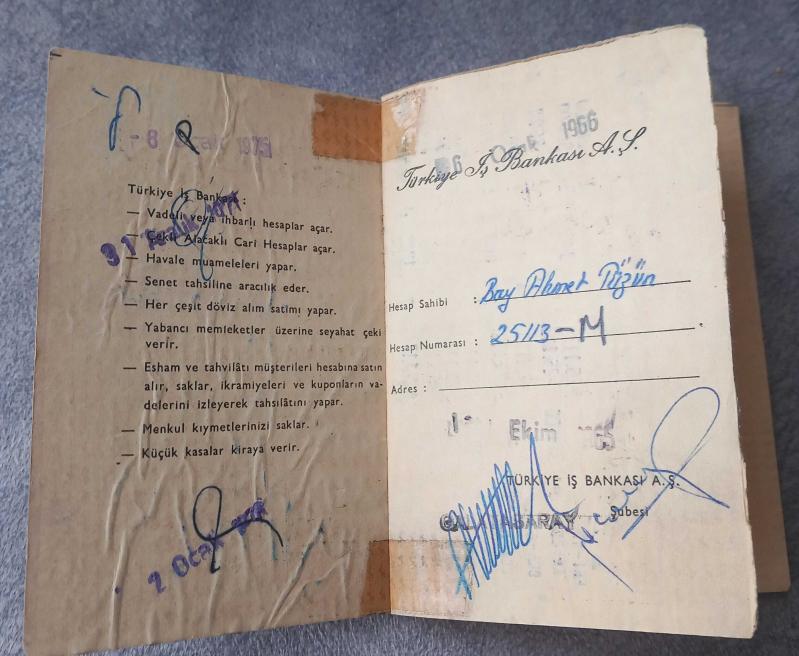 -8 Ocak 1975
Türkiye İş Bankası :
— Vadeli veya ihbarlı hesaplar açar.
— Çekli Alacaklı Cari Hesaplar açar.
31 Aralık
— Havale muameleleri yapar.
— Senet tahsiline aracılık eder.
— Her çeşit döviz alım satımı yapar.
— Yabancı memleketler üzerine seyahat çeki
verir.
— Esham ve tahvilâtı müşterileri hesabına satın
alır, saklar, ikramiyeleri ve kuponların va-
delerini izleyerek tahsilâtını yapar.
— Menkul kıymetlerinizi saklar.
— Küçük kasalar kiraya verir.
2 Ocak
6 Ocak 1966
Türkiye İş Bankası A.Ş.
Hesap Sahibi : Bay Ahmet Tüzün
Hesap Numarası : 25113-M
Adres :
Ekim
TÜRKİYE İŞ BANKASI A.Ş.
GALATASARAY Şubesi